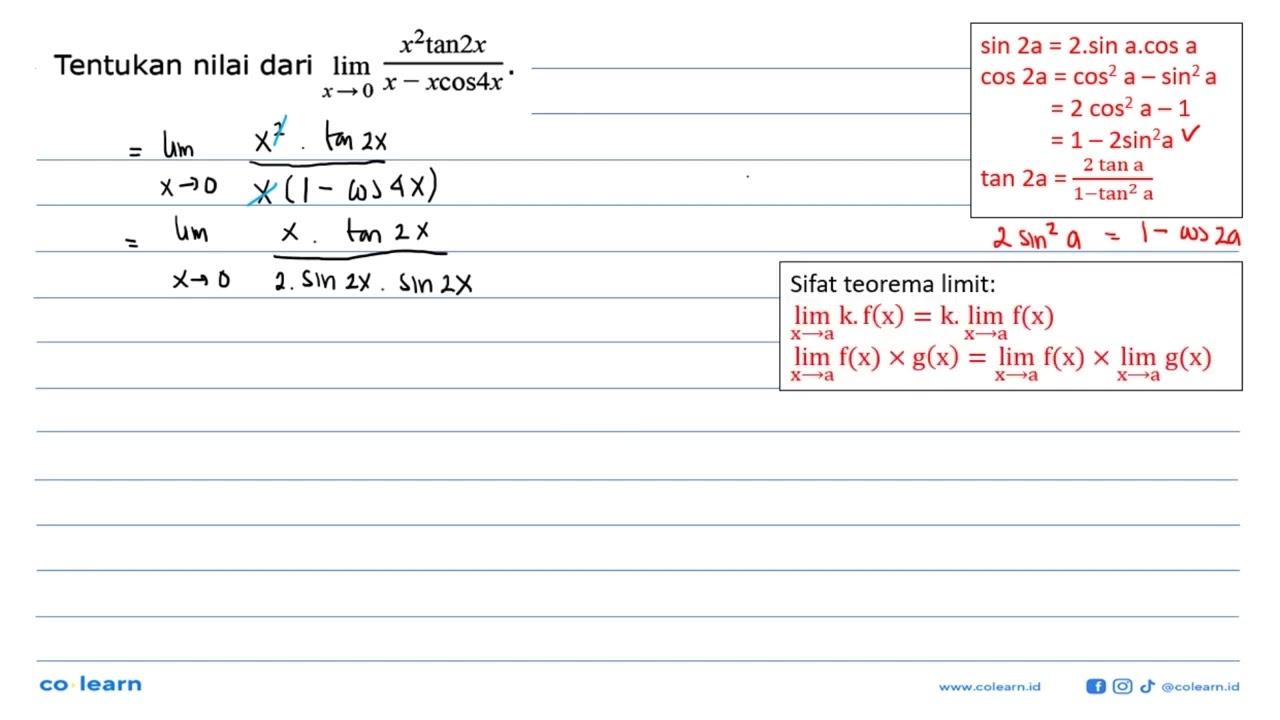 Tentukan nilai dari lim x→0 x²tan2x / x − xcos4x .
= lim x→0 x² . tan 2x / x (1 − cos 4x)
= lim x→0 x . tan 2x / 2 . sin 2x . sin 2x
sin 2a = 2.sin a.cos a
cos 2a = cos² a – sin² a
= 2 cos² a – 1
= 1 – 2sin²a ✓
tan 2a = 2 tan a / 1−tan² a
2 sin² a = 1 − cos 2a
Sifat teorema limit:
lim x→a k. f(x) = k. lim x→a f(x)
lim x→a f(x) × g(x) = lim x→a f(x) × lim x→a g(x)
co learn
www.colearn.id
@colearn.id